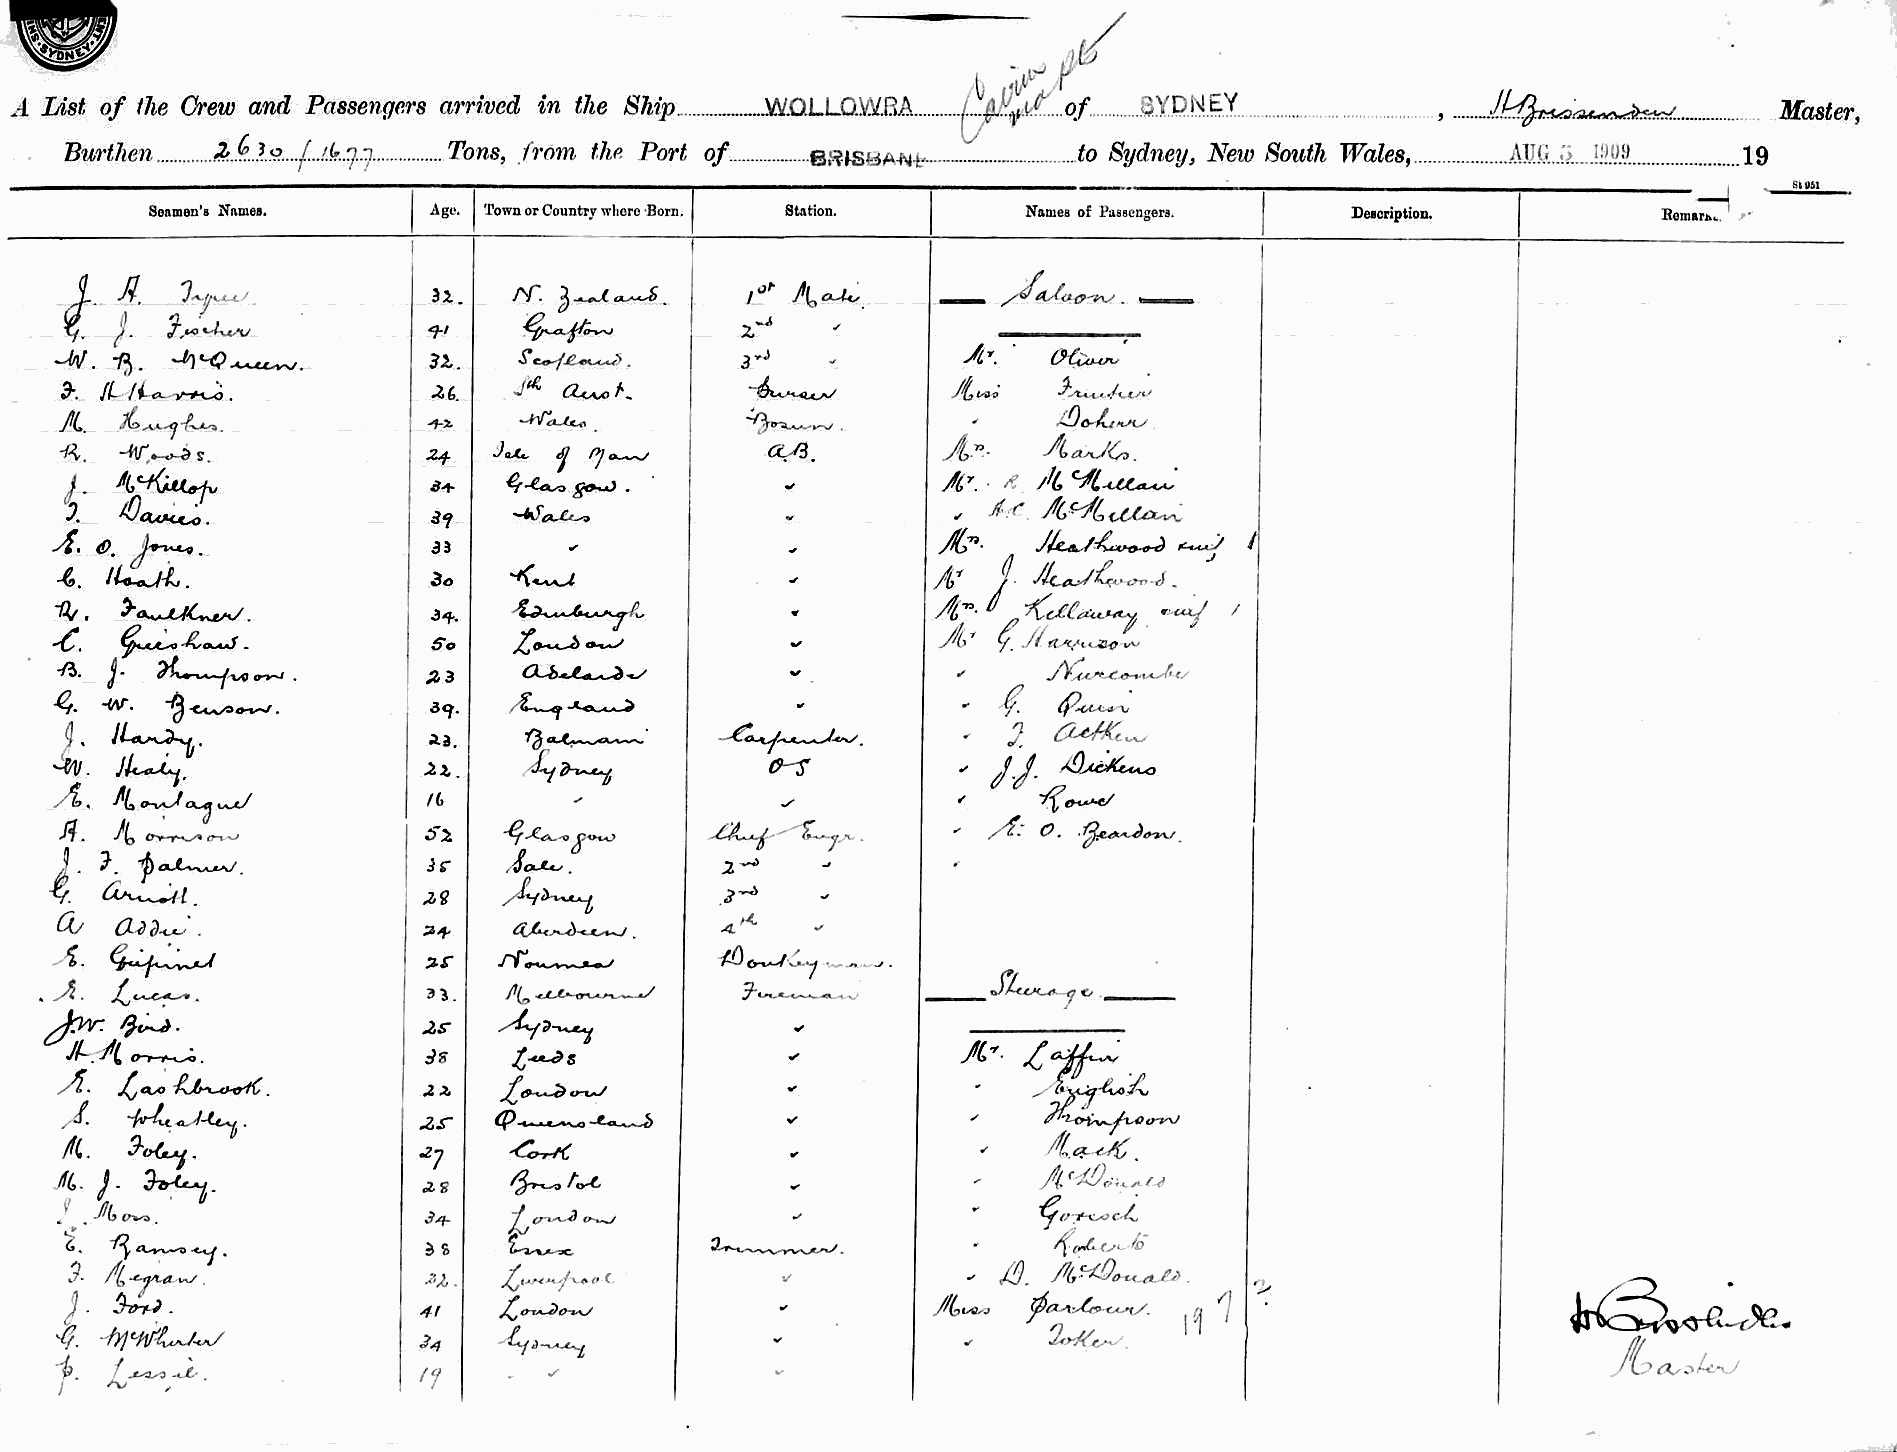 SYDNEY
A List of the Crew and Passengers arrived in the Ship WOLLOWRA of SYDNEY, H Brissenden Master,
Burthen 2630/1677 Tons, from the Port of BRISBANE to Sydney, New South Wales, AUG 5 1909 19
St 951
Seamen's Names. Age. Town or Country where Born. Station. Names of Passengers. Description. Remarks.
J. A. 32. N. Zealand. 1st Mate Saloon.
G. J. Fischer 41 Grafton 2nd "
W. B. McQueen. 32. Scotland. 3rd " Mr. Oliver
F. H Harris. 26. Sth Aust. Purser Miss
M. Hughes. 42 Wales. Bosun. " Doherr
R. Woods. 24 Isle of Man A.B. Mrs. Marks.
J. McKillop 34 Glasgow. " Mr. R McMillan
T. Davies. 39 Wales " " A.C. McMillan
E. O. Jones. 33 " " Mrs. Heathwood & inf 1
C. Heath. 30 Kent " Mr J. Heathwood.
R. Faulkner. 34. Edinburgh " Mrs. Kellaway & inf 1
C. Grieshaw. 50 London " Mr G. Harrison
B. J. Thompson. 23 Adelaide " " Nurcombe
G. W. Benson. 39. England " " G. Quin
J. Hardy. 23. Balmain Carpenter. " F. Aetken
W. Healy. 22. Sydney OS " J.J. Dickens
E. Montague 16 " " " Rowe
A. Morrison 52 Glasgow Chief Engr. " E. O. Beardon.
J. F. Palmer. 35 Sale. 2nd " "
G. Arnott. 28 Sydney 3rd "
A Addie. 24 Aberdeen. 4th "
E. 25 Noumea Donkeyman.
E. Lucas. 33. Melbourne Fireman Steerage.
J.W. Bird. 25 Sydney "
H. Morris. 38 Leeds " Mr. Laffin
E. Lashbrook. 22 London " " English
S. Wheatley. 25 Queensland " " Thompson
M. Foley. 27 Cork " " Mack.
M. J. Foley. 28 Bristol " " McDonald
J. Moss. 34 London " " Goresch
E. Ramsey. 38 Essex Trimmer. " Roberts
F. Megran. 22. Liverpool " " D. McDonald.
J. Ford. 41 London " Miss Parlour. 19
G. McWhirter 34 Sydney " " Toker.
P. Lessie. 19 " "
Master